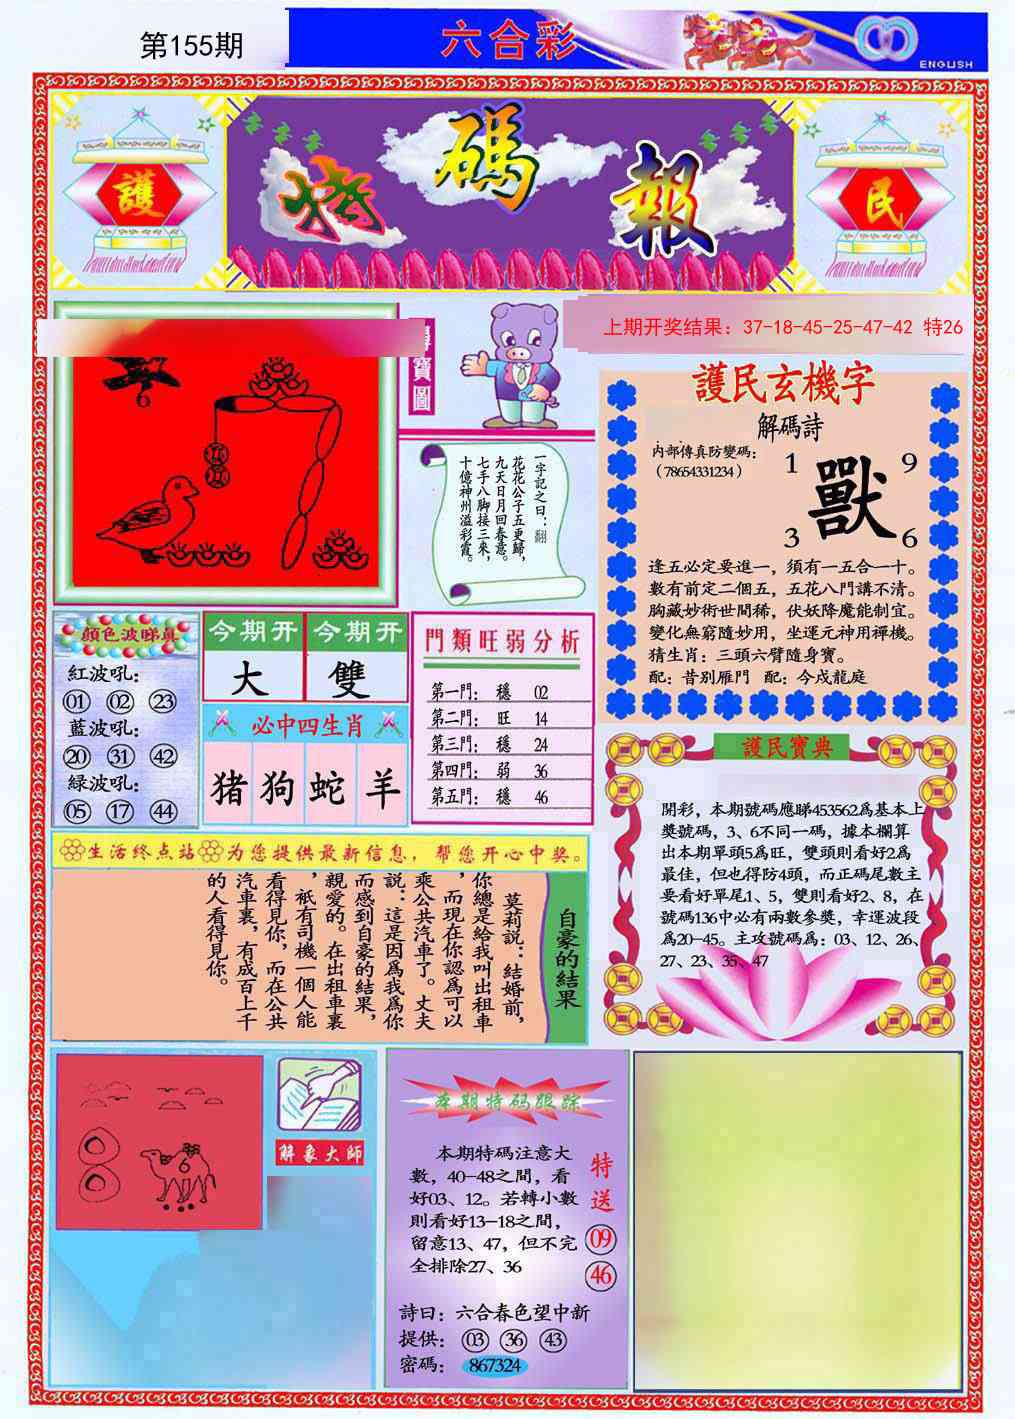 第155期
六合彩
ENGLISH
護
特碼報
民
上期开奖结果：37-18-45-25-47-42 特26
6
尋寶圖
一字記之曰：翻
花花公子五更歸，
九天日月回春意。
七手八脚接三來，
十億神州溢彩霞。
護民玄機字
解碼詩
内部傳真防變碼：
（78654331234）
1
9
獸
3
6
逢五必定要進一，須有一五合一十。
數有前定二個五，五花八門講不清。
胸藏妙術世間稀，伏妖降魔能制宜。
變化無窮隨妙用，坐運元神用禪機。
猜生肖：三頭六臂隨身寶。
配：昔别雁門 配：今戍龍庭
顔色波睇真
紅波吼：
01 02 23
藍波吼：
20 31 42
緑波吼：
05 17 44
今期开 今期开
大 雙
必中四生肖
猪 狗 蛇 羊
門類旺弱分析
第一門： 穩 02
第二門： 旺 14
第三門： 穩 24
第四門： 弱 36
第五門： 穩 46
護民寶典
開彩，本期號碼應睇453562爲基本上
獎號碼，3、6不同一碼，據本欄算
出本期單頭5爲旺，雙頭則看好2爲
最佳，但也得防4頭，而正碼尾數主
要看好單尾1、5，雙則看好2、8，在
號碼136中必有兩數參獎，幸運波段
爲20-45。主攻號碼爲：03、12、26、
27、23、35、47
生活终点站 为您提供最新信息，帮您开心中奖。
自豪的結果
莫莉説：結婚前，
你總是給我叫出租車
，而現在你認爲可以
乘公共汽車了。丈夫
説：這是因爲我爲你
而感到自豪的結果，
親愛的。在出租車裏
，祇有司機一個人能
看得見你，而在公共
汽車裏，有成百上千
的人看得見你。
6
解象大師
本期特码跟踪
本期特碼注意大
數，40-48之間，看
好03、12。若轉小數
則看好13-18之間，
留意13、47，但不完
全排除27、36
特送
09
46
詩曰：六合春色望中新
提供： 03 36 43
密碼： 867324